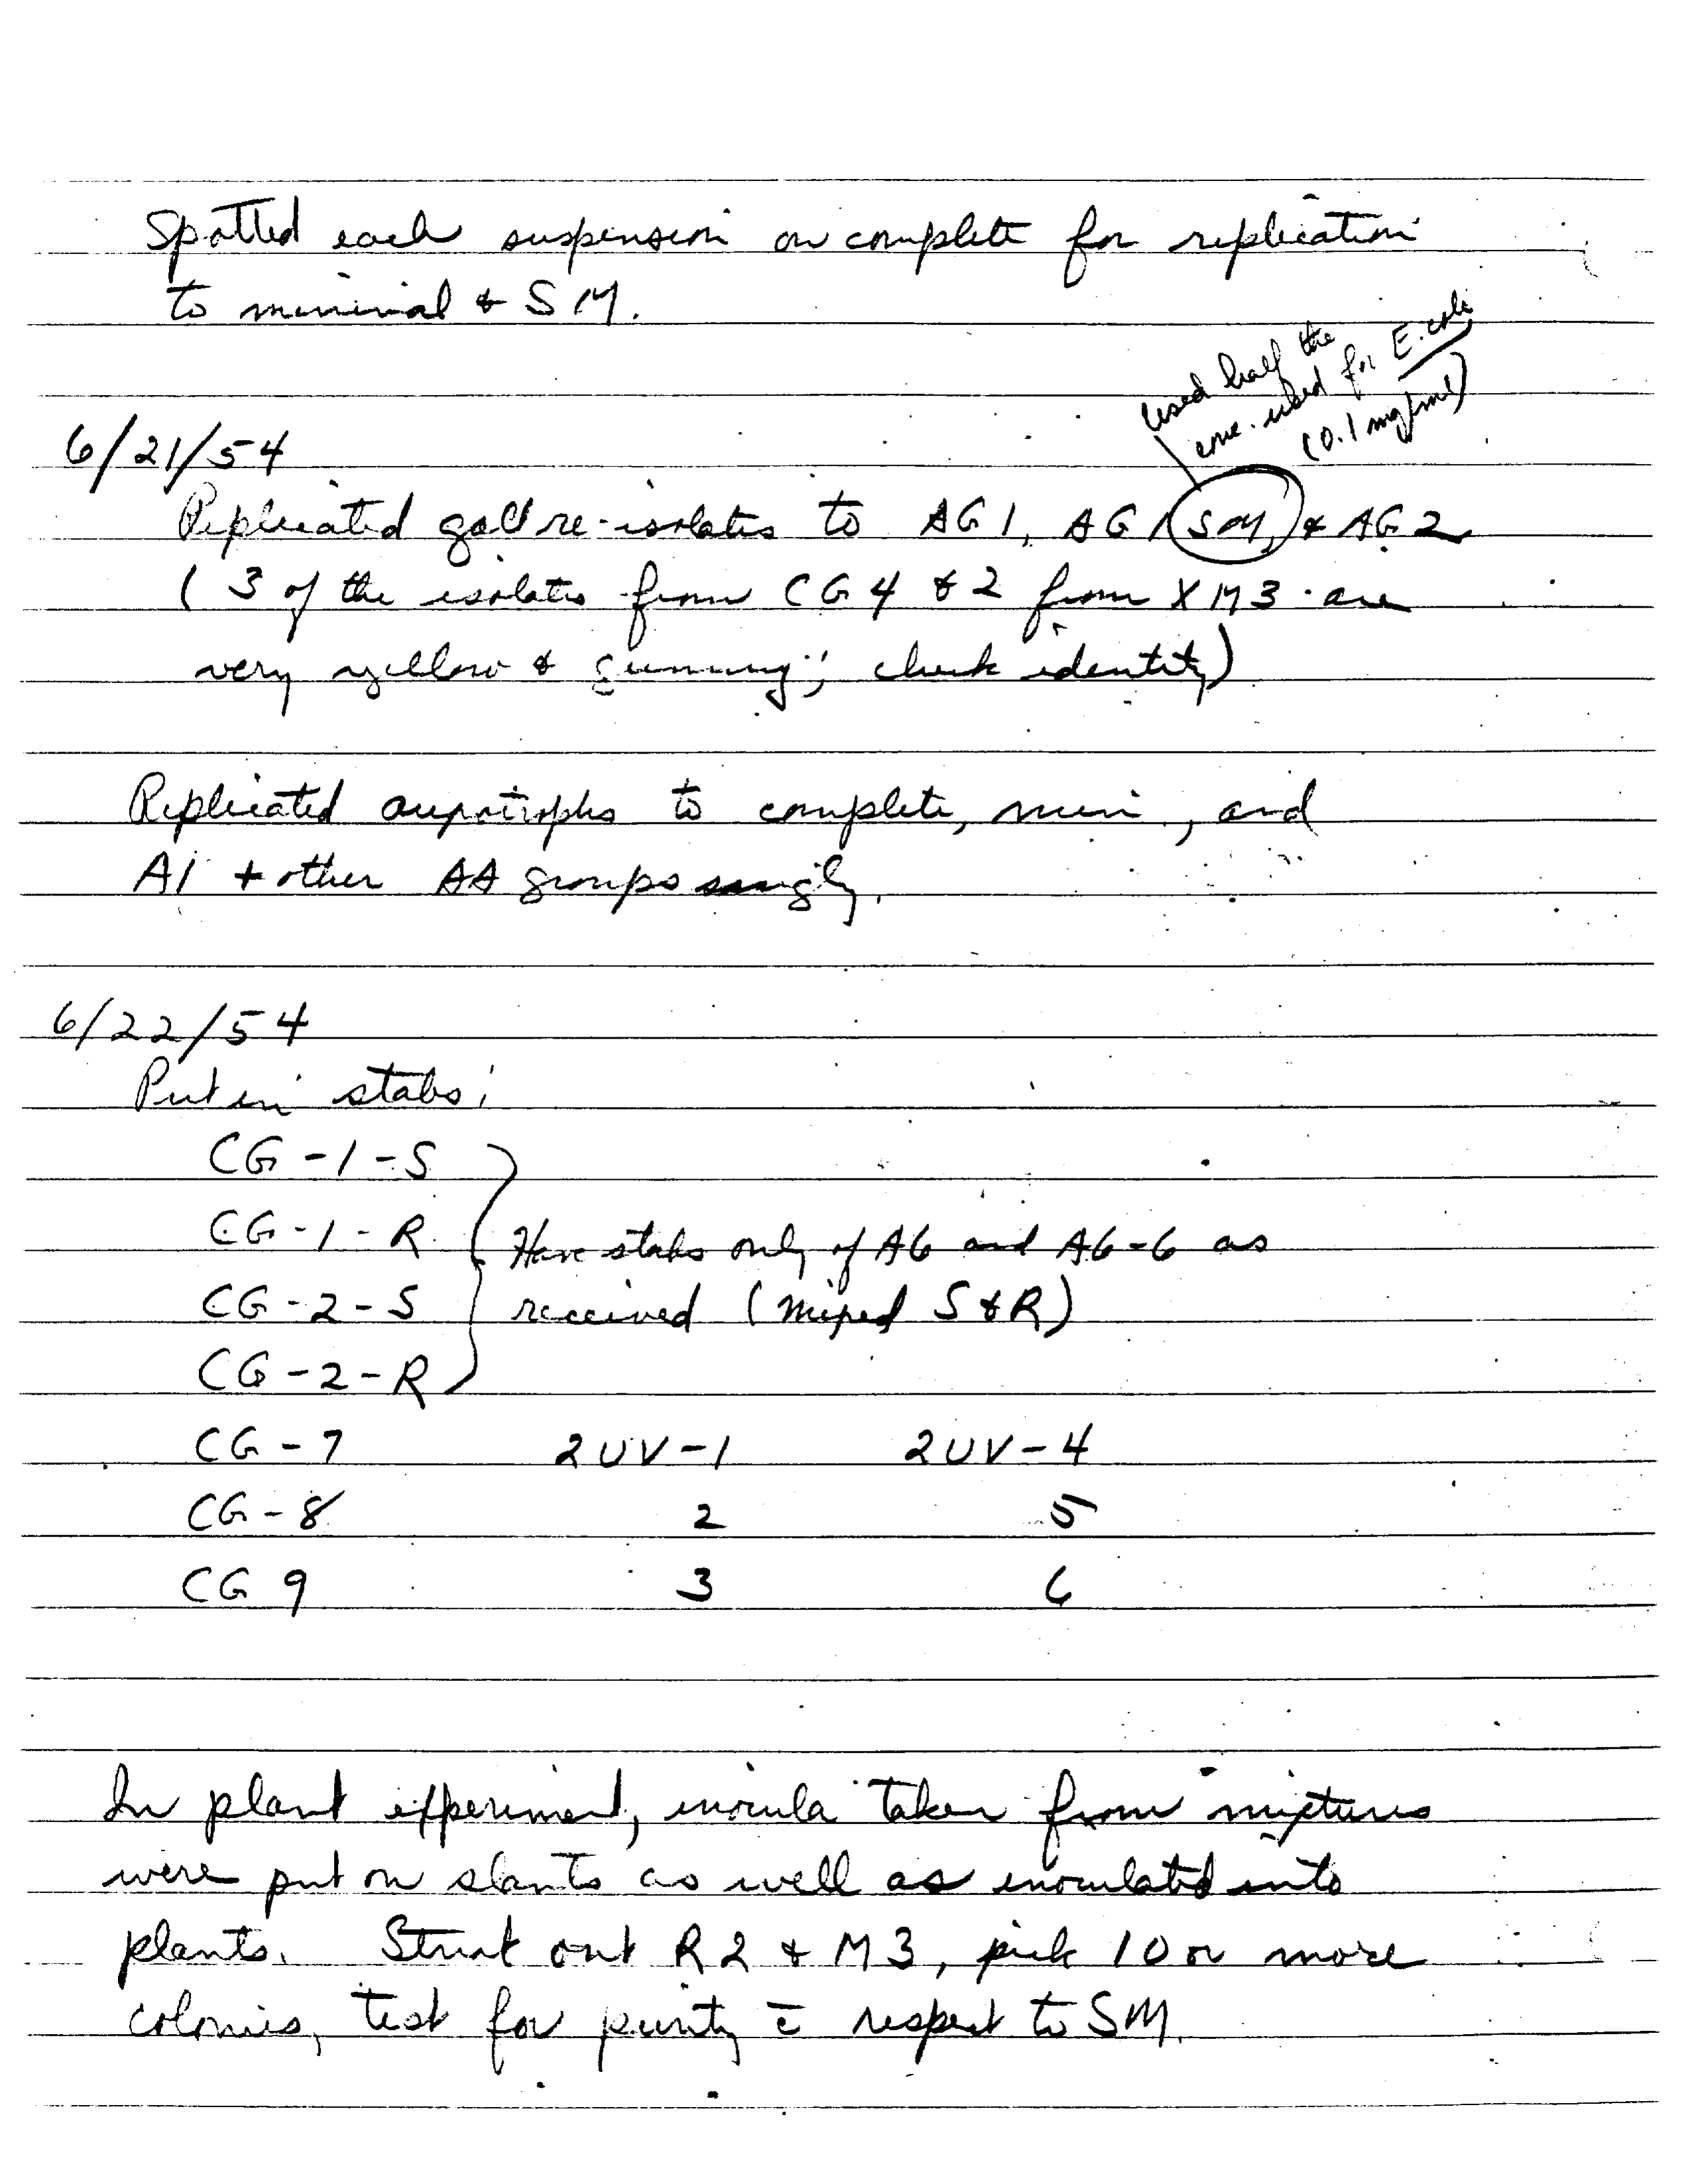 Spotted each suspension on complete for replication
to minimal & SM.
used half the
conc. used for E. coli
(0.1 mg/ml)
6/21/54
Replicated gall re-isolates to AG1, AG1 SM, & AG2
(3 of the isolates from CG4 & 2 from XM3 are
very yellow & gummy; check identity)
Replicated auxotrophs to complete, min., and
A1 + other AA groups singly.
6/22/54
Put in stabs:
CG-1-S
CG-1-R
CG-2-S
CG-2-R
Have stabs only of A6 and A6-6 as
received (mixed S & R)
CG-7 2UV-1 2UV-4
CG-8 2 5
CG 9 3 6
In plant experiment, inocula taken from mixtures
were put on slants as well as inoculated into
plants. Streak out R2 & M3, pick 10 or more
colonies, test for purity c̄ respect to SM.